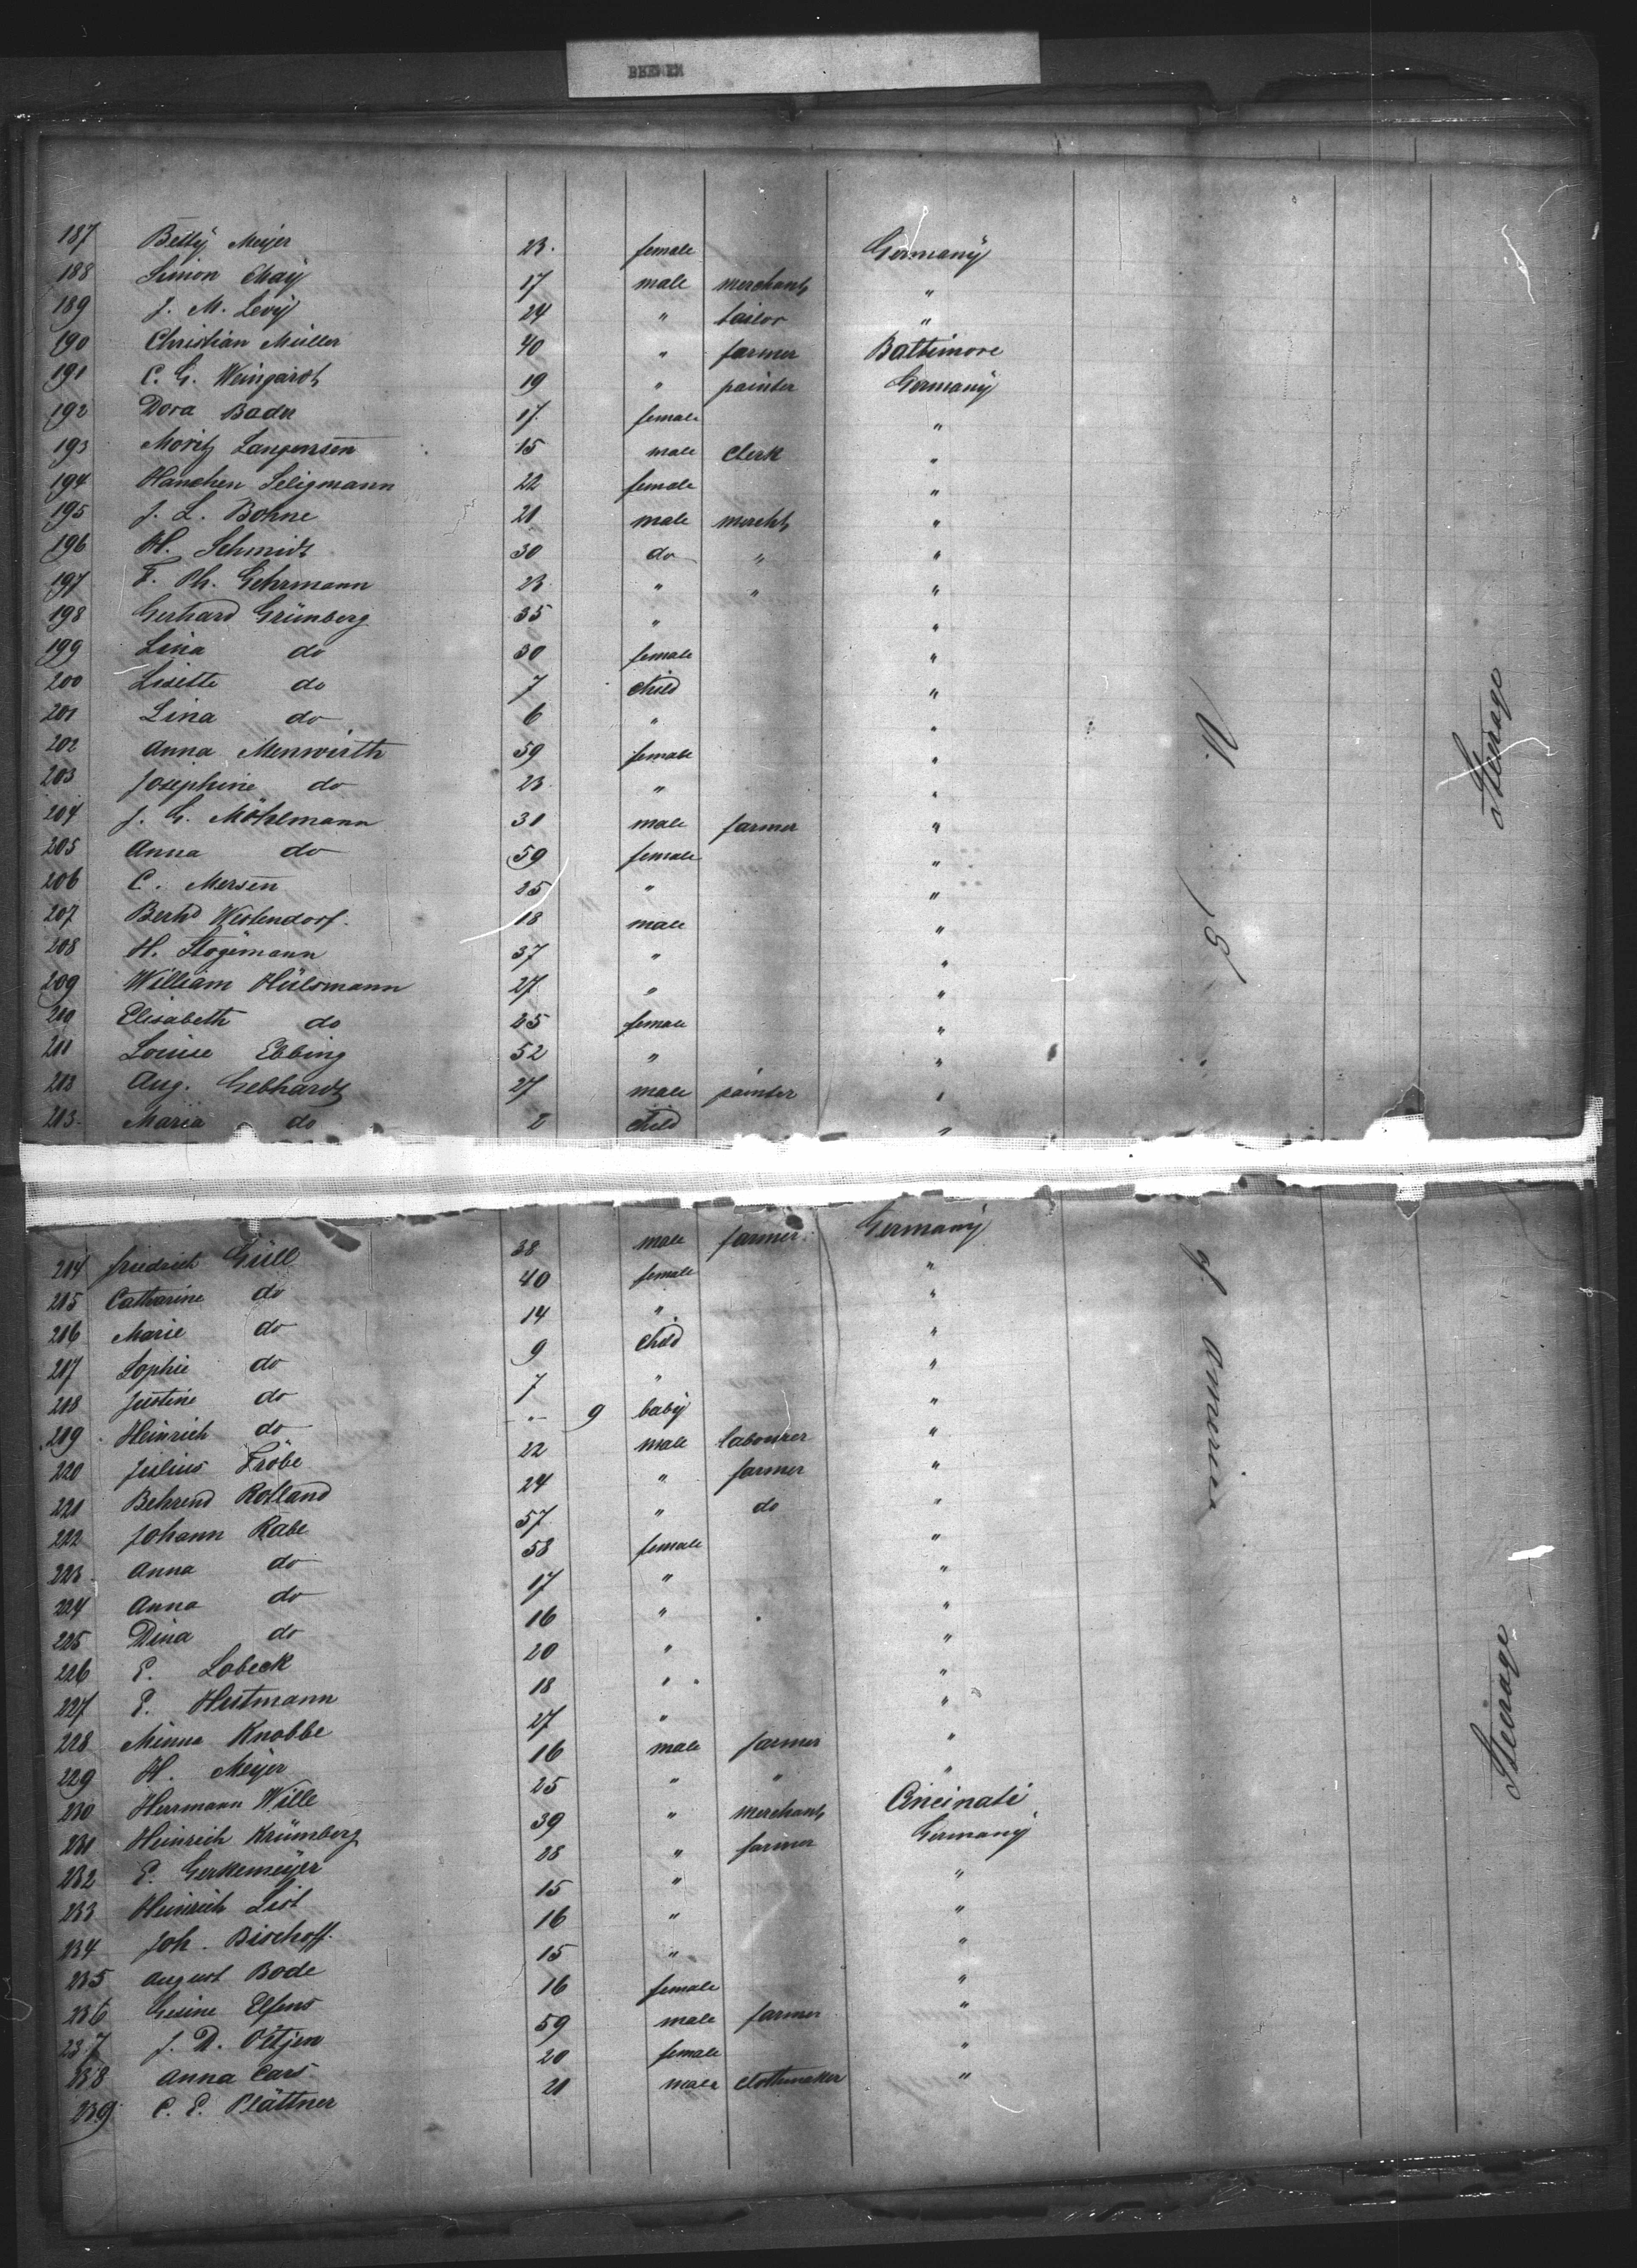 BREMEN
187 Betty Meyer 23. female Germany
188 Simon May 17 male merchant "
189 J. M. Levy 24 " tailor "
190 Christian Müller 40 " farmer Baltimore
191 C. G. Weingardt 19 " painter Germany
192 Dora Bader 17 female "
193 Moritz Langensen 15 male Clerk "
194 Hanchen Seligmann 22 female "
195 J. L. Bohne 21 male mercht "
196 H. Schmidt 30 do " "
197 F. Ph. Gehrmann 23 " " "
198 Gerhard Grümberg 35 " "
199 Lina do 30 female "
200 Lisette do 7 child "
201 Lina do 6 " "
202 Anna Menwirth 59 female "
203 Josephine do 23 " "
204 J. G. Möhlmann 31 male farmer "
205 Anna do 59 female "
206 C. Mersen 25 " "
207 Bernd Westendorf. 18 male "
208 H. Stogemann 37 " "
209 William Hülsmann 27 " "
210 Elisabeth do 25 female "
211 Louise Ebbing 52 " "
212 Aug. Gebhardt 27 male painter "
213. Maria do 2 child "
U. S.
Steerage
214 Friedrich Güll 38 male farmer Germany
215 Catharine do 40 female "
216 Marie do 14 " "
217 Sophie do 9 child "
218 Justine do 7 " "
219 Heinrich do " 9 baby "
220 Julius Fröbe 22 male labourer "
221 Behrend Rotland 24 " farmer "
222 Johann Rabe 57 " do "
223 Anna do 53 female "
224 Anna do 17 " "
225 Dina do 16 " "
226 E. Lobeck 20 " "
227 E. Hustmann 18 " "
228 Minna Knobbe 27 " "
229 H. Meyer 16 male farmer "
230 Herrmann Wille 25 " " "
231 Heinrich Krümberg 39 " merchant Cincinati
232 E. Gerkemeyer 28 " farmer Germany
233 Heinrich List 15 " "
234 Joh. Bischoff. 16 " "
235 August Bode 15 " "
236 Gesine Elfers 16 female "
237 J. D. Oltjen 59 male farmer "
238 Anna Cars 20 female "
239 C. E. Plättner 21 male clothmaker "
of America
Steerage